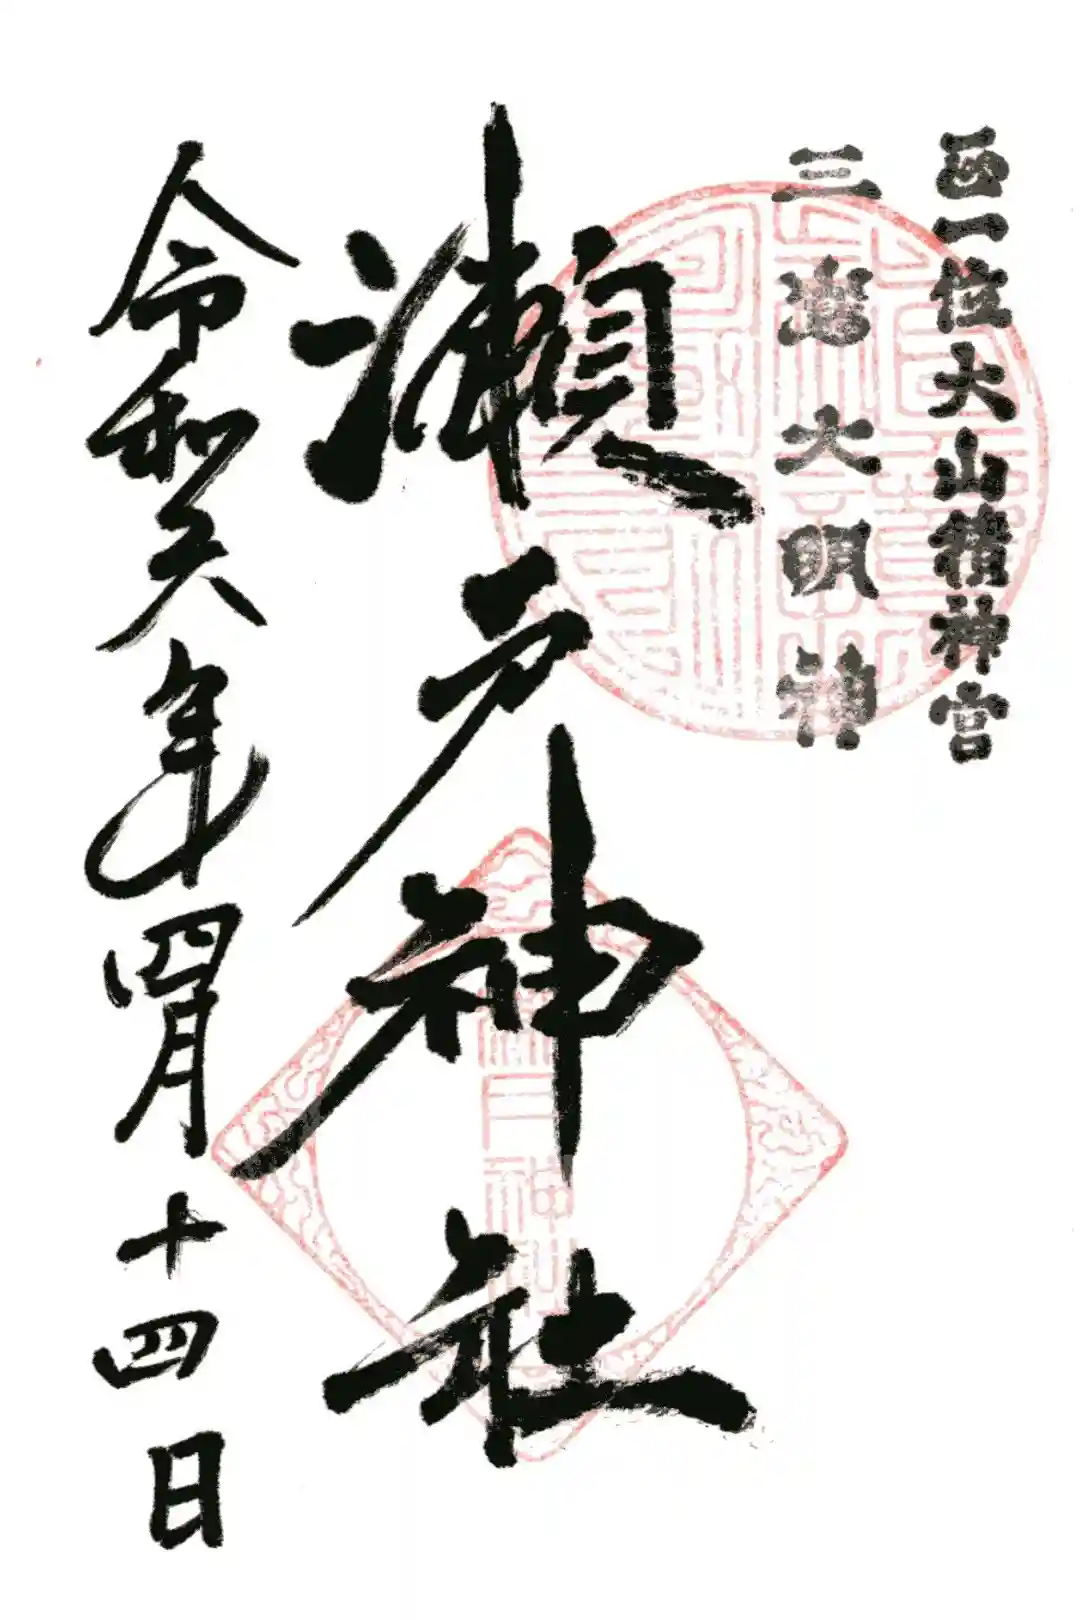 正一位大山積神宮
三嶌大明神
瀬戸神社
令和六年四月十四日
瀬戸神社